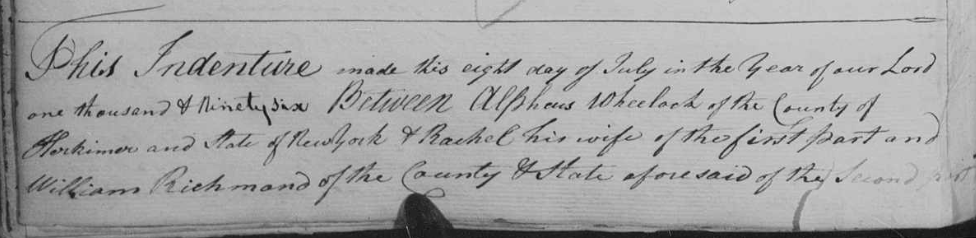 This Indenture made this eight day of July in the Year of our Lord
one thousand & Ninety six Between Alpheus Wheelock of the County of
Herkimer and State of New York & Rachel his wife of the first part and
William Richmond of the County & State aforesaid of the Second part